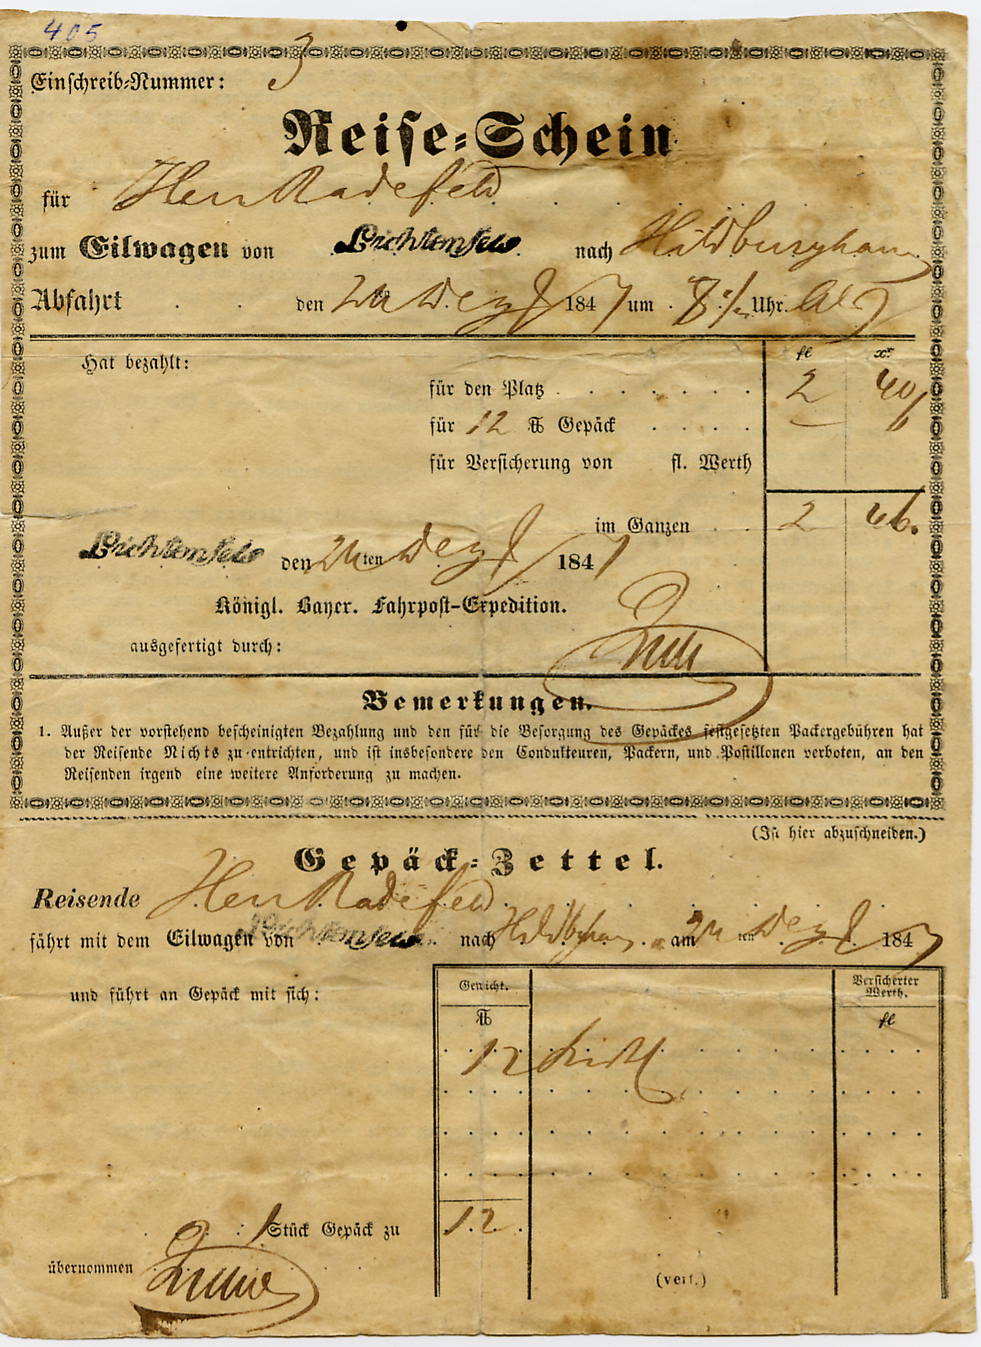 405
Einschreib-Nummer: 3
Reise-Schein
für Herr Radefeld
zum Eilwagen von Lichtenfels nach Hildburghausen
Abfahrt den 24 Dezb 1847 um 8 1/2 Uhr
Hat bezahlt: fl xr
für den Platz 2 40
für 12 ℔ Gepäck 6
für Versicherung von fl. Werth
im Ganzen 2 46.
Lichtenfels den 24ten Dezb 1847
Königl. Bayer. Fahrpost-Expedition.
ausgefertigt durch:
Bemerkungen.
1. Außer der vorstehend bescheinigten Bezahlung und den für die Besorgung des Gepäckes festgesetzten Packergebühren hat
der Reisende Nichts zu entrichten, und ist insbesondere den Condukteuren, Packern, und Postillonen verboten, an den
Reisenden irgend eine weitere Anforderung zu machen.
(Ist hier abzuschneiden.)
Gepäck-Zettel.
Reisende Herr Radefeld
fährt mit dem Eilwagen von Lichtenfels nach Hildbghausen am 24ten Dezb 1847
und führt an Gepäck mit sich: Gewicht. Versicherter Werth.
℔ fl
12
1 Stück Gepäck zu 12
übernommen
(vert.)